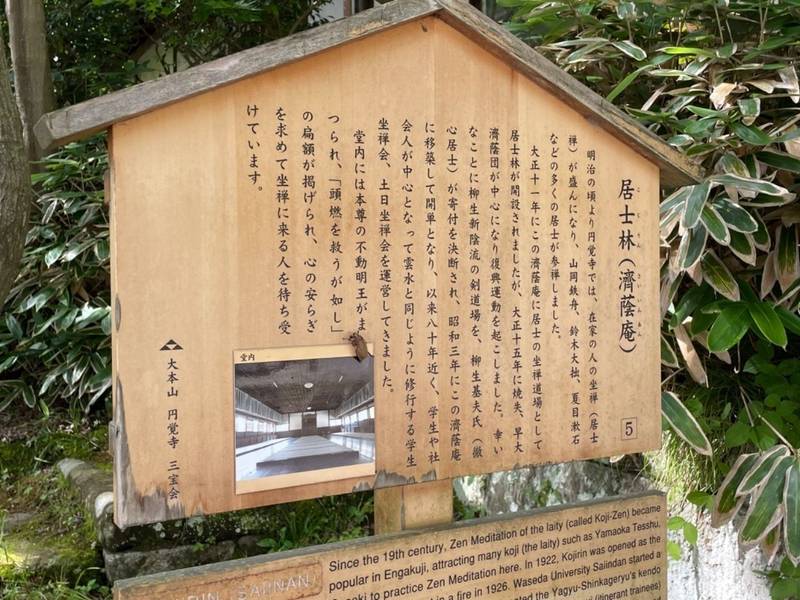 居士林（濟蔭庵）
こじりん さいいんあん
5
明治の頃より円覚寺では、在家の人の坐禅（居士
禅）が盛んになり、山岡鉄舟、鈴木大拙、夏目漱石
などの多くの居士が参禅しました。
大正十一年にこの濟蔭庵に居士の坐禅道場として
居士林が開設されましたが、大正十五年に焼失、早大
濟蔭団が中心になり復興運動を起こしました。幸い
なことに柳生新陰流の剣道場を、柳生基夫氏（徹
心居士）が寄付を決断され、昭和三年にこの濟蔭庵
に移築して開単となり、以来八十年近く、学生や社
会人が中心となって雲水と同じように修行する学生
坐禅会、土日坐禅会を運営してきました。
堂内には本尊の不動明王がま
つられ、「頭燃を救うが如し」
の扁額が掲げられ、心の安らぎ
を求めて坐禅に来る人を待ち受
けています。
堂内
大本山 円覚寺 三宝会
SAIINAN)
Since the 19th century, Zen Meditation of the laity (called Koji-Zen) became
popular in Engakuji, attracting many koji (the laity) such as Yamaoka Tesshu,
to practice Zen Meditation here. In 1922, Kojirin was opened as the
in a fire in 1926. Waseda University Saiindan started a
the Yagyu-Shinkageryu's kendo
(itinerant trainees)